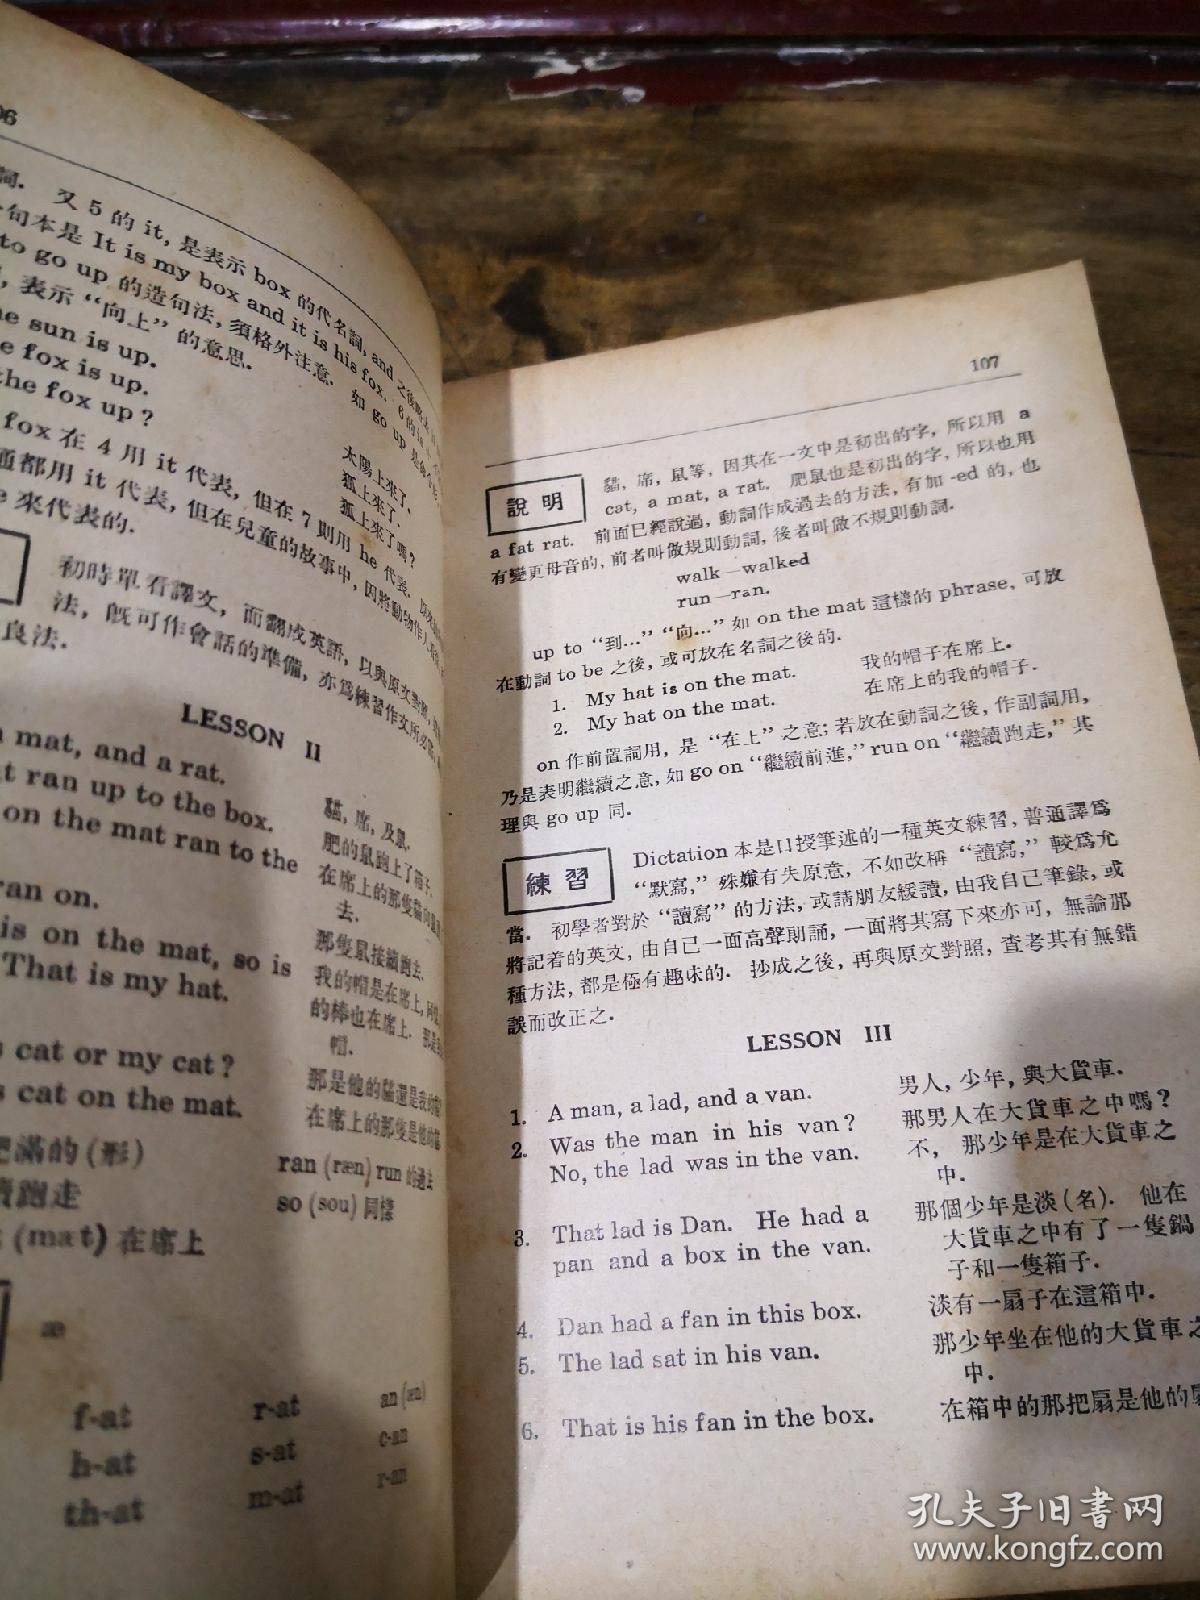 06
詞. 又 5 的 it, 是表示 box 的代名詞, and 之後略
句本是 It is my box and it is his fox. 6 的
to go up 的造句法, 須格外注意. 如 go up 是
表示 “向上” 的意思.
he sun is up. 太陽上來了.
e fox is up. 狐上來了.
the fox up? 狐上來了嗎?
fox 在 4 用 it 代表, 但在 7 則用 he 代表.
通都用 it 代表, 但在兒童的故事中, 因將動物作人
e 來代表的.
初時單看譯文, 而翻成英語, 以與原文對照,
法, 既可作會話的準備, 亦爲練習作文所必
良法.
LESSON II
mat, and a rat. 貓, 席, 及鼠.
t ran up to the box. 肥的鼠跑上了箱子.
on the mat ran to the 在席上的那隻貓向
去.
ran on. 那隻鼠接續跑去.
is on the mat, so is 我的帽是在席上, 同
That is my hat. 的棒也在席上. 那是
帽.
cat or my cat? 那是他的貓還是我的
s cat on the mat. 在席上的那隻是他的貓
肥滿的 (形) ran (ræn) run 的過去
跑走 so (sou) 同樣
(mat) 在席上
æ
an (æn)
f-at r-at
c-an
h-at s-at
r-an
th-at m-at
107
說明
貓, 席, 鼠等, 因其在一文中是初出的字, 所以用 a
cat, a mat, a rat. 肥鼠也是初出的字, 所以也用
a fat rat. 前面已經說過, 動詞作成過去的方法, 有加 -ed 的, 也
有變更母音的, 前者叫做規則動詞, 後者叫做不規則動詞.
walk—walked
run—ran.
up to “到…” “向…” 如 on the mat 這樣的 phrase, 可放
在動詞 to be 之後, 或可放在名詞之後的.
1. My hat is on the mat. 我的帽子在席上.
2. My hat on the mat. 在席上的我的帽子.
on 作前置詞用, 是 “在上” 之意; 若放在動詞之後, 作副詞用,
乃是表明繼續之意, 如 go on “繼續前進,” run on “繼續跑走,” 其
理與 go up 同.
練習
Dictation 本是口授筆述的一種英文練習, 普通譯爲
“默寫,” 殊嫌有失原意, 不如改稱 “讀寫,” 較爲允
當. 初學者對於 “讀寫” 的方法, 或請朋友緩讀, 由我自己筆錄, 或
將記着的英文, 由自己一面高聲朗誦, 一面將其寫下來亦可, 無論那
種方法, 都是極有趣味的. 抄成之後, 再與原文對照, 查考其有無錯
誤而改正之.
LESSON III
1. A man, a lad, and a van. 男人, 少年, 與大貨車.
2. Was the man in his van? 那男人在大貨車之中嗎?
No, the lad was in the van. 不, 那少年是在大貨車之
中.
3. That lad is Dan. He had a 那個少年是淡 (名). 他在
pan and a box in the van. 大貨車之中有了一隻鍋
子和一隻箱子.
4. Dan had a fan in this box. 淡有一扇子在這箱中.
5. The lad sat in his van. 那少年坐在他的大貨車之
中.
6. That is his fan in the box. 在箱中的那把扇是他的扇
孔夫子旧书网
www.kongfz.com